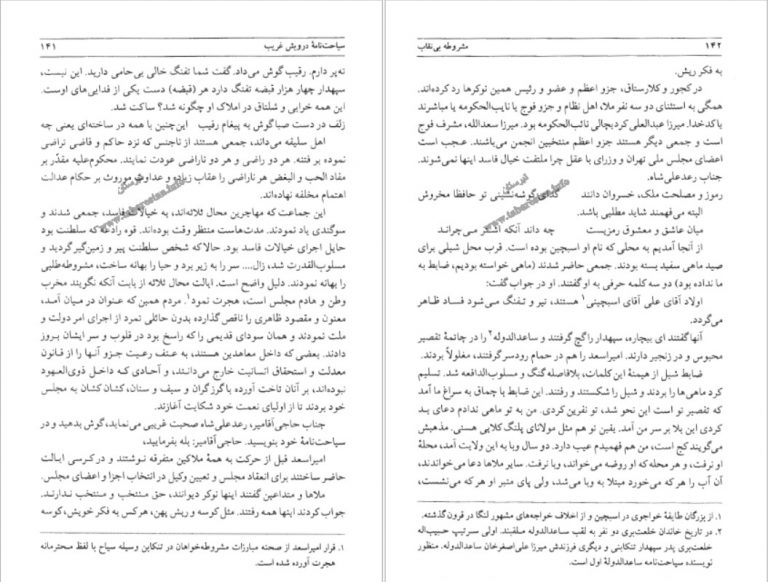 سیاحت‌نامهٔ درویش غریب ۱۴۱
ته‌پر دارم. رقیب گوش می‌داد. گفت شما تفنگ خالی بی‌حامی دارید. این نیست،
سپهدار چهار هزار قبضه تفنگ دارد هر (قبضه) دست یکی از فدایی‌های اوست.
این همه خرابی و شلتاق در املاک او چگونه شد؟ ساکت شد.
زلف در دست صبا گوش به پیغام رقیب این‌چنین با همه در ساخته‌ای یعنی چه
اهل سلیقه می‌داند، جمعی هستند از ناجنس که نزد حاکم و قاضی تراضی
نموده بر فتنه. هر دو راضی و هر دو ناراضی عودت نمایند. محکوم‌علیه مقدّر بر
مفاد الحب و البغض هر ناراضی را عقاب زیاده و عداوتش موروث بر حکام عدالت
اهتمام مخلفه نهاده‌اند.
این جماعت که مهاجرین محال ثلاثه‌اند، به خیالات فاسد، جمعی شدند و
سوگندی یاد نمودند. مدت‌هاست منتظر وقت بوده‌اند. قوه رادعه که سلطنت بود
حایل اجرای خیالات فاسد بود. حالا که شخص سلطنت پیر و زمین‌گیر گردید و
مسلوب‌القدرت شد، زال.... سر را به زیر برد و حیا را بهانه ساخت، مشروطه‌طلبی
را بهانه نمودند. دلیل واضح است. ایالت محال ثلاثه از بابت آنکه نگویند مخرب
وطن و هادم مجلس است، هجرت نمود۱. مردم همین که عنوان در میان آمد،
معنون و مقصود ظاهری را ناقص گذارده بدون حائلی نمرد از اجرای امر دولت و
ملت نمودند و همان سودای قدیمی را که راسخ بود در قلوب و سر ایشان بروز
دادند. بعضی که داخل معاهدین هستند، به عنف رعیت جزو آنها را از قانون
معدلت و استحقاق انسانیت خارج می‌دانند، و آحادی که داخل ذوی‌العهود
نبوده‌اند، بر آنان تاخت آورده با گرزگران و سیف و سنان، کشان کشان به مجلس
خود بردند تا از اولیای نعمت خود شکایت آغازند.
جناب حاجی‌آقامیر، رعدعلی‌شاه صحبت غریبی می‌نماید، گوش بدهید و در
سیاحت‌نامهٔ خود بنویسید. حاجی‌آقامیر: بله بفرمایید،
امیراسعد قبل از حرکت به همهٔ ملاکین متفرقه نوشتند و در کرسی ایالت
حاضر ساختند برای انعقاد مجلس و تعیین وکیل در انتخاب اجزا و اعضای مجلس.
ملاها و متداعین گفتند اینها نوکر دیوانند، حق منتخب و منتخب ندارند.
جواب کردند اینها همه رفتند. مثل کوسه و ریش پهن، هرکس به فکر خویش، کوسه
۱. قرار امیراسعد از صحنه مبارزات مشروطه‌خواهان در تنکابن وسیله سیاح با لفظ محترمانه
هجرت آورده شده است.
۱۴۲ مشروطه بی‌نقاب
به فکر ریش.
در کجور و کلارستاق، جزو اعظم و عضو و رئیس همین نوکرها رد کرده‌اند.
همگی به استثنای دو سه نفر ملا، اهل نظام و جزو فوج یا نایب‌الحکومه یا مباشرند
یا کدخدا. میرزا عبدالعلی کردیچالی نائب‌الحکومه بود. میرزا سعدالله، مشرف فوج
است و جمعی دیگر هستند جزو اعظم منتخبین انجمن می‌باشند. عجب است
اعضای مجلس ملی تهران و وزرای با عقل چرا ملتفت خیال فاسد اینها نمی‌شوند.
جناب رعدعلی‌شاه.
رموز و مصلحت ملک، خسروان دانند گدای گوشه‌نشینی تو حافظا مخروش
البته می‌فهمند شاید مطلبی باشد.
میان عاشق و معشوق رمزیست چه داند آنکه اشتر می‌چراند
از آنجا آمدیم به محلی که نام او اسبچین بوده است. قرب محل شیلی برای
صید ماهی سفید بسته بودند. جمعی حاضر شدند (ماهی خواسته بودیم، ضابط به
ما نداده بود) دو سه کلمه حرفی به او گفتند. او در جواب گفت:
اولاد آقای علی آقای اسبچینی۱ هستند، تیر و تفنگ می‌شود فساد ظاهر
می‌گردد.
آنها گفتند ای بیچاره، سپهدار را گچ گرفتند و ساعدالدوله۲ را در چاتمهٔ تقصیر
محبوس و در زنجیر دارند. امیراسعد را هم در حمام رودسر گرفتند، مغلولاً بردند.
ضابط شیل از هیمنهٔ این کلمات، بلافاصله گنگ و مسلوب‌الدافعه شد. تسلیم
کرد ماهی‌ها را بردند و شیل را شکستند و رفتند. این ضابط با چماق به سراغ ما آمد
که تقصیر تو است این نحو شد، تو نفرین کردی. من به تو ماهی ندادم دعای بد
کردی این بلا بر سر من آمد. یقین تو هم مثل مولانای پلنگ کلایی هستی. مذهبش
می‌گویند کج است، من هم فهمیدم عیب دارد. دو سال وبا به این ولایت آمد، محلهٔ
او نرفت، و هر محله که او روضه می‌خواند، وبا نرفت. سایر ملاها دعا می‌خواندند،
آن آب را هر که می‌خورد مبتلا به وبا می‌شد، ولی پای منبر او هر که می‌نشست،
۱. از بزرگان طایفهٔ خواجوی در اسبچین و از اخلاف خواجه‌های مشهور لنگا در قرون گذشته.
۲. در تاریخ خاندان خلعت‌بری دو نفر به لقب ساعدالدوله ملقبند. اولی سرتیپ حبیب‌اله
خلعت‌بری پدر سپهدار تنکابنی و دیگری فرزندش میرزا علی‌اصغرخان ساعدالدوله. منظور
نویسنده سیاحت‌نامه ساعدالدولهٔ اول است.